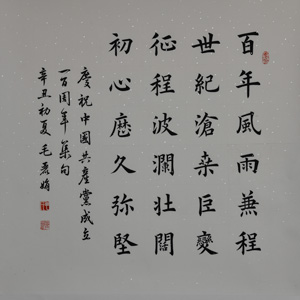 百年風雨兼程
世紀滄桒巨變
征程波瀾壯闊
初心歷久弥堅
慶祝中國共產黨成立
一百周年集句
辛丑初夏毛